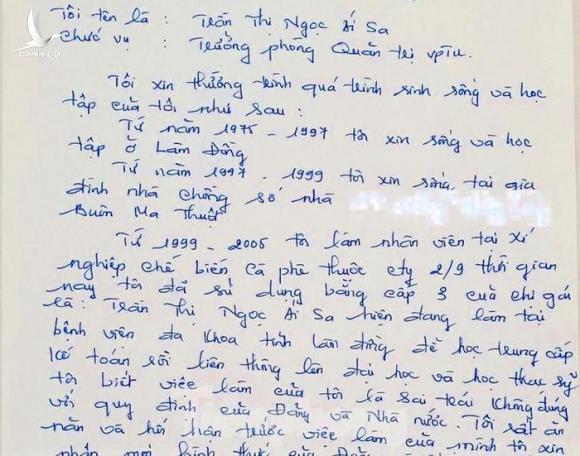 Tôi tên là : Trần Thị Ngọc Ái Sa
Chức vụ : Trưởng phòng Quản trị VPTU.
Tôi xin tường trình quá trình sinh sống và học
tập của tôi như sau :
Từ năm 1975 - 1997 tôi xin sống và học
tập ở Lâm Đồng
Từ năm 1997 - 1999 tôi xin sống tại gia
đình nhà chồng số nhà
Buôn Ma Thuột
Từ 1999 - 2005 tôi làm nhân viên tại Xí
nghiệp chế biến Cà phê thuộc cty 2/9 thời gian
này tôi đã sử dụng bằng cấp 3 của chị gái
là : Trần Thị Ngọc Ái Sa hiện đang làm tại
bệnh viện đa Khoa tỉnh Lâm đồng để học trung cấp
kế toán rồi liên thông lên đại học và học thạc sỹ
Tôi biết việc làm của tôi là sai trái không đúng
với quy định của Đảng và Nhà nước. Tôi rất ăn
năn và hối hận trước việc làm của mình tôi xin
nhận mọi hình thức của